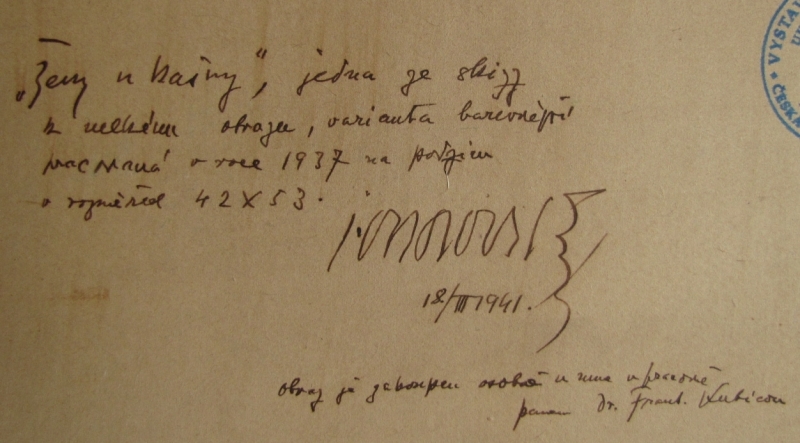 „Ženy u kašny“, jedna ze skizz
k velkému obrazu, varianta barevnější
v roce 1937 na podzim
v rozměrech 42X53.
18/III 1941.
obraz je zakoupen osobně u mne v pracovně
panem Dr. Frant. Kubicou
VYSTA
ČESK